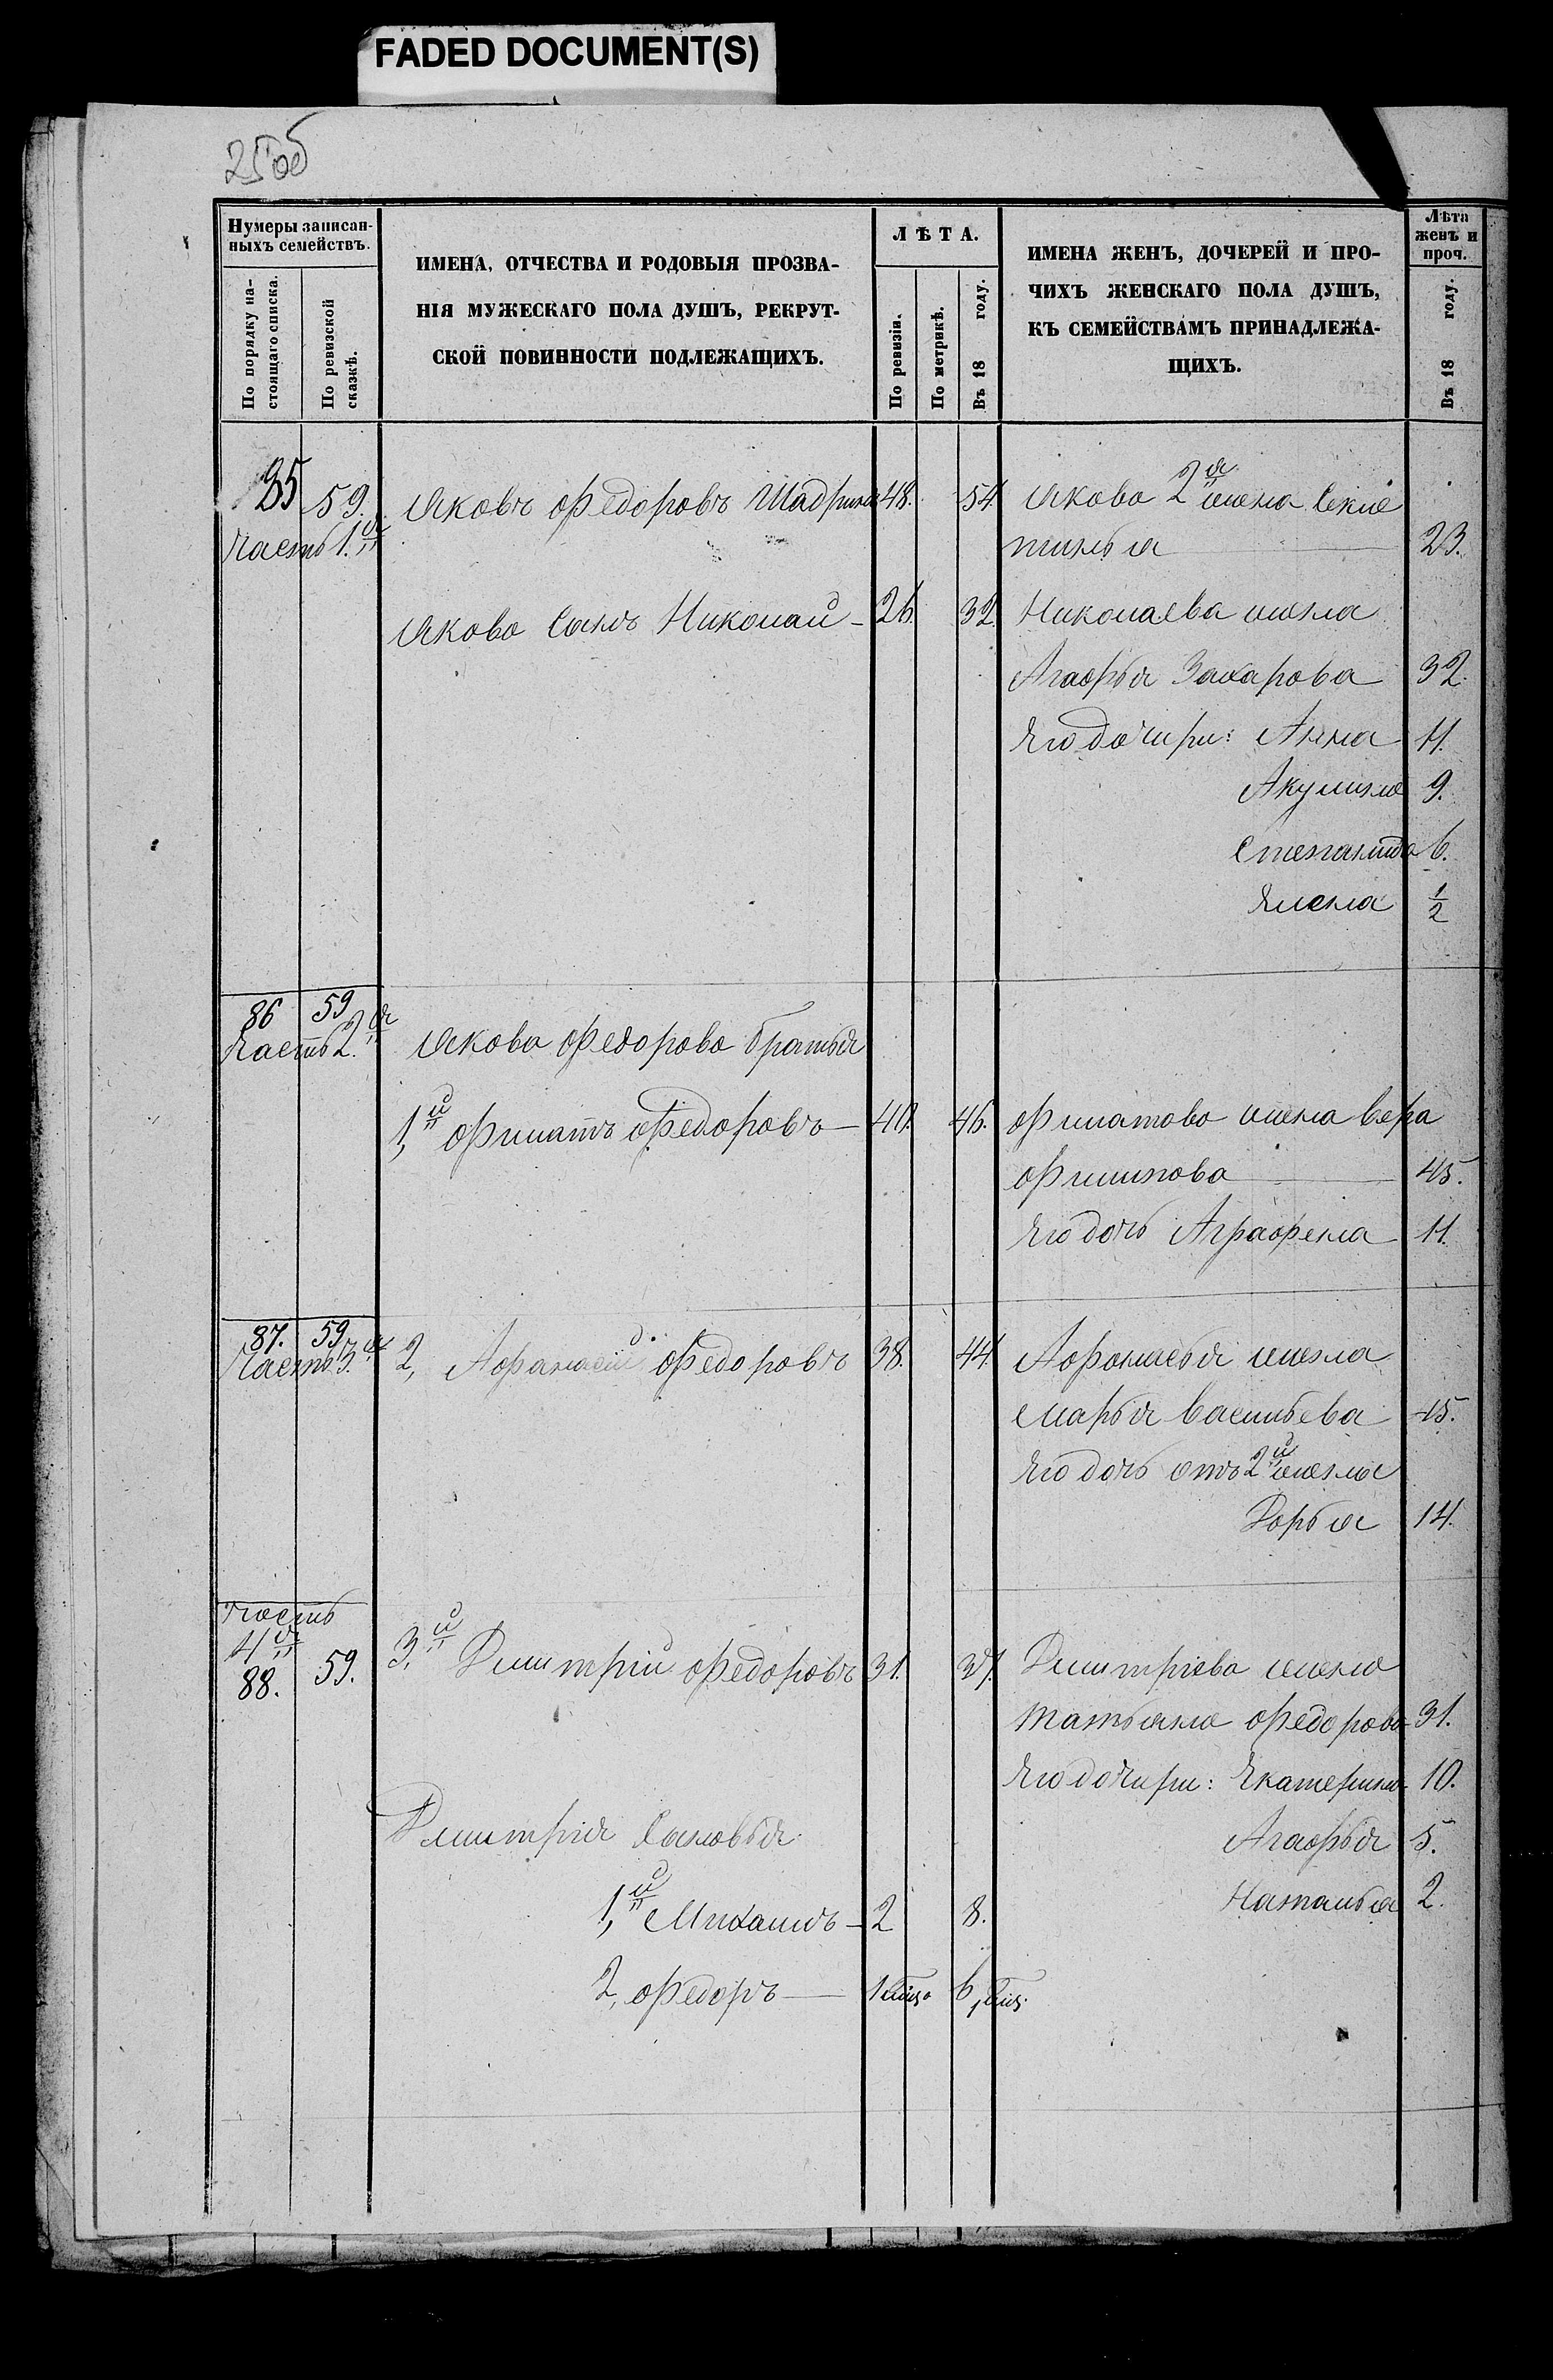 FADED DOCUMENT(S)
25 об
Нумеры записан-
ныхъ семействъ.
По порядку на-
стоящаго списка.
По ревизской
сказкѣ.
ИМЕНА, ОТЧЕСТВА И РОДОВЫЯ ПРОЗВА-
НІЯ МУЖЕСКАГО ПОЛА ДУШЪ, РЕКРУТ-
СКОЙ ПОВИННОСТИ ПОДЛЕЖАЩИХЪ.
ЛѢТА.
По ревизіи.
По метрикѣ.
Въ 18 году.
ИМЕНА ЖЕНЪ, ДОЧЕРЕЙ И ПРО-
ЧИХЪ ЖЕНСКАГО ПОЛА ДУШЪ,
КЪ СЕМЕЙСТВАМЪ ПРИНАДЛЕЖА-
ЩИХЪ.
Лѣта
женъ и
проч.
Въ 18 году.
85 59. Яковъ Федоровъ Шадринъ 48. 54. Якова 2я жена Секле
Часть 1.я тинья 23.
Якова Сынъ Николай 26. 32. Николаева жена
Агафья Захарова 32.
Его дочири: Анна 11.
Акулина 9.
Степанида 6.
Елена 1/2
86 59
Часть 2.я Якова Федорова братья
1,й Филатъ Федоровъ 40. 46. Филатова жена Вера
Филипова 45.
Его дочь Аграфена 11.
87. 59
Часть 3.я 2, Афанасий Федоровъ 38. 44. Афонасья жена
Марья Васильева 45.
Его дочь отъ 2й жены
Дарья 14.
Часть
4я
88. 59. 3,й Дмитрий Федоровъ 31. 37. Дмитриева жена
Татьяна Федорова 31.
Его дочири: Екатерина 10.
Дмитрия Сыновья Агафья 5.
1,й Михаилъ 2 8. Наталья 2.
2, Федоръ 1 6